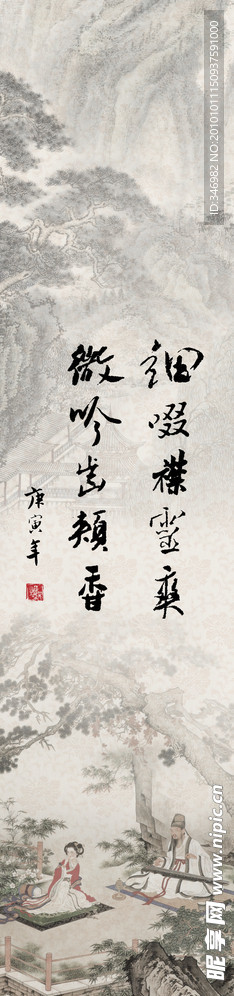 细啜襟灵爽
微吟齿颊香
庚寅年
ID:346982 NO:20101011150937591000
昵享网 www.nipic.cn